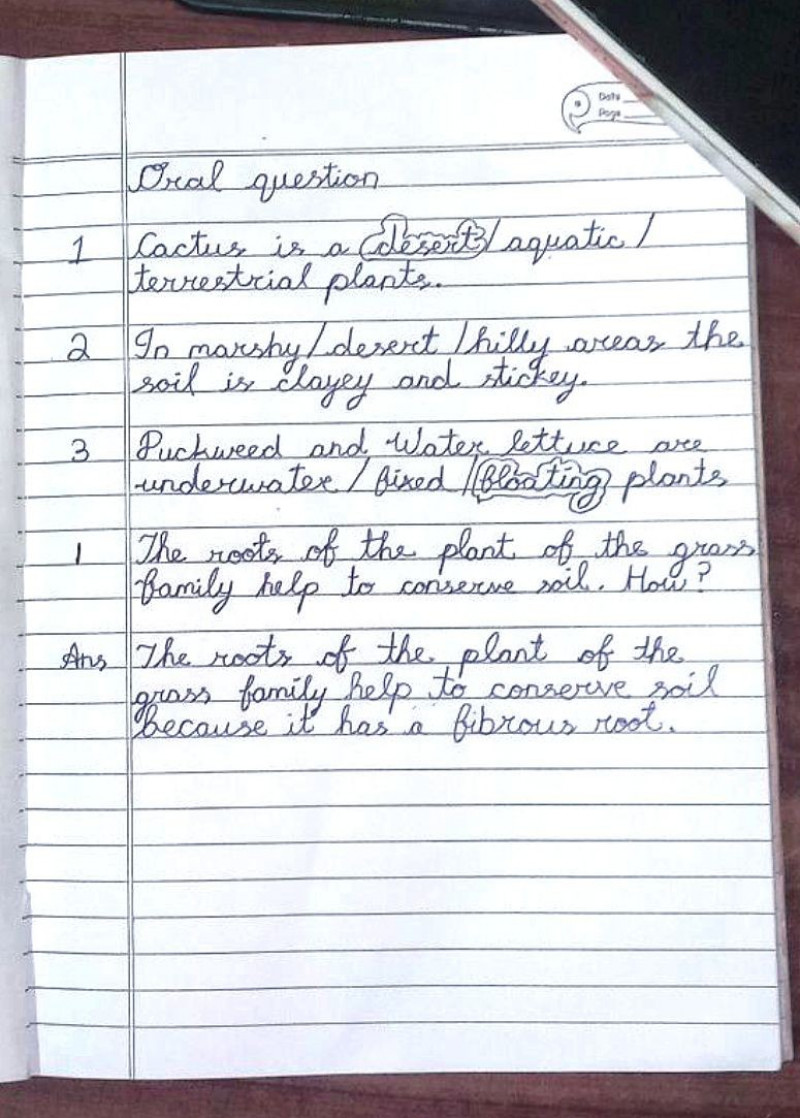 Date
Page
Oral question
1 Cactus is a desert/aquatic/
terrestrial plants.
2 In marshy/desert/hilly areas the
soil is clayey and stickey.
3 Puckweed and Water lettuce are
underwater/fixed/floating plants
1 The roots of the plant of the grass
family help to conserve soil. How?
Ans The roots of the plant of the
grass family help to conserve soil
because it has a fibrous root.